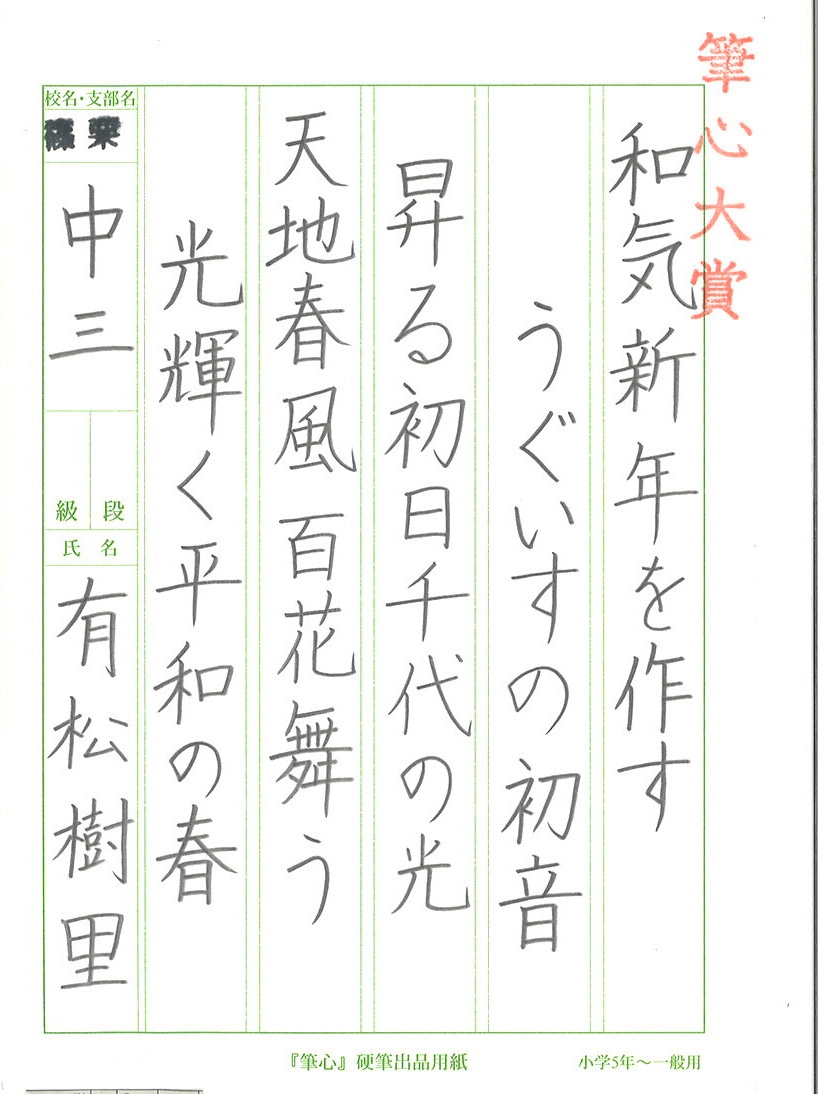 筆心大賞
和気新年を作す
うぐいすの初音
昇る初日千代の光
天地春風百花舞う
光輝く平和の春
校名・支部名
篠栗
中三
級 段
氏名
有松樹里
『筆心』硬筆出品用紙
小学5年〜一般用